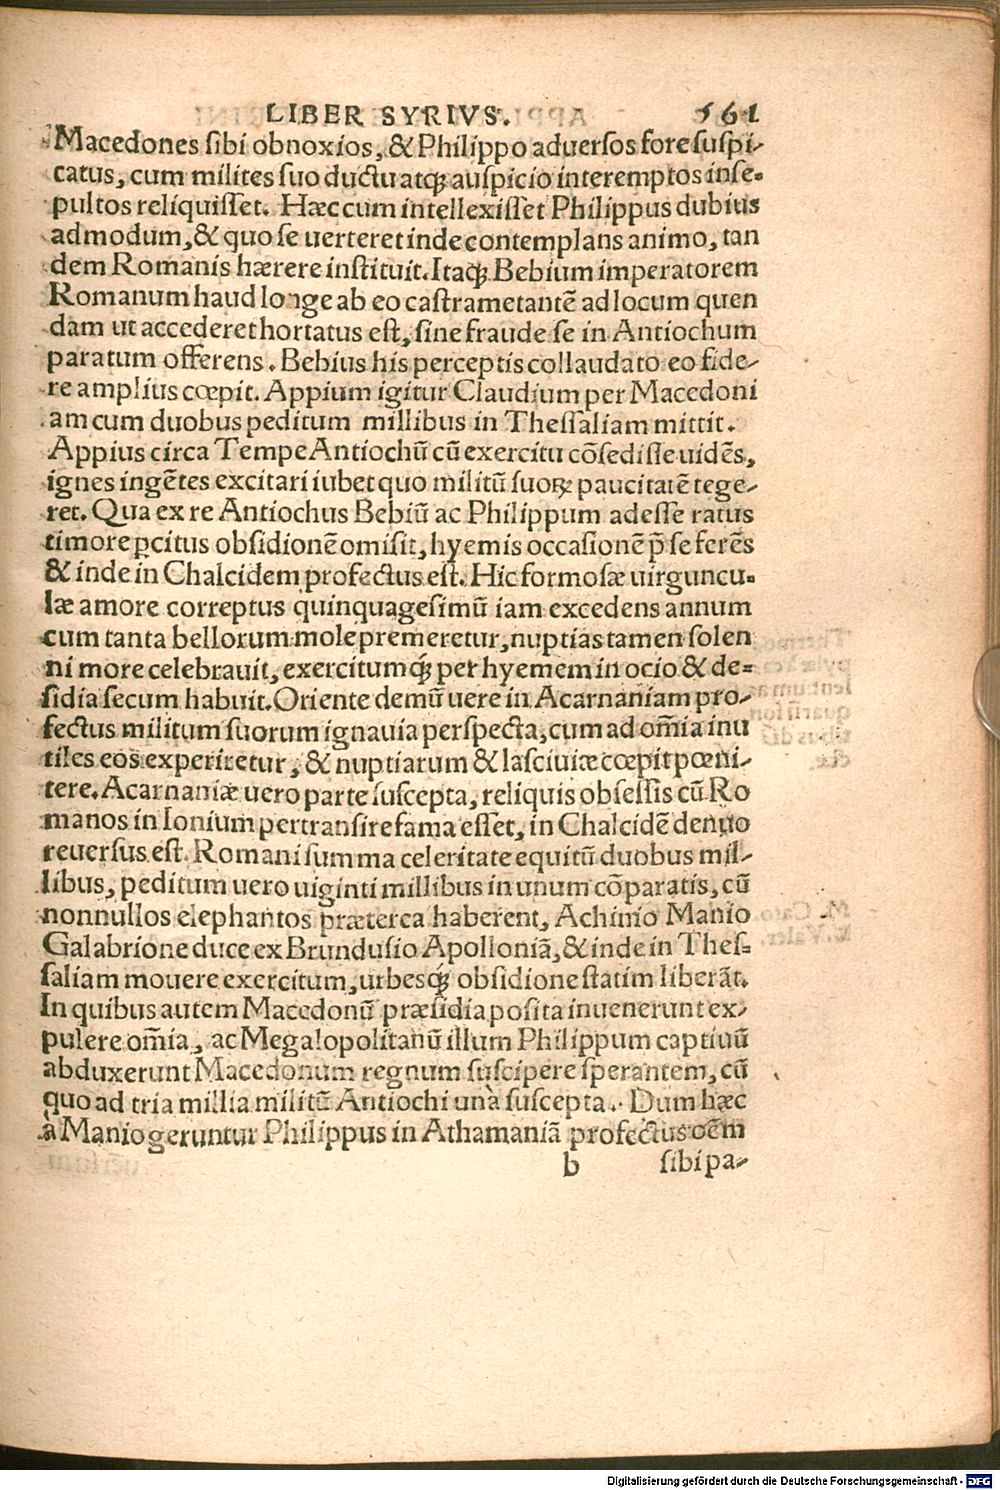 LIBER SYRIVS. 561
Macedones sibi obnoxios, & Philippo aduersos fore suspi-
catus, cum milites suo ductu atq; auspicio interemptos inse-
pultos reliquisset. Hæc cum intellexisset Philippus dubius
admodum, & quo se uerteret inde contemplans animo, tan
dem Romanis hærere instituit. Itaq; Bebium imperatorem
Romanum haud longe ab eo castrametantē ad locum quen
dam ut accederet hortatus est, sine fraude se in Antiochum
paratum offerens. Bebius his perceptis collaudato eo fide-
re amplius cœpit. Appium igitur Claudium per Macedoni
am cum duobus peditum millibus in Thessaliam mittit.
Appius circa Tempe Antiochū cū exercitu cōsedisse uidēs,
ignes ingētes excitari iubet quo militū suoꝝ paucitatē tege-
ret. Qua ex re Antiochus Bebiū ac Philippum adesse ratus
timore ꝑcitus obsidionē omisit, hyemis occasionē p̄ se ferēs
& inde in Chalcidem profectus est. Hic formosæ uirguncu-
læ amore correptus quinquagesimū iam excedens annum
cum tanta bellorum mole premeretur, nuptias tamen solen
ni more celebrauit, exercitumq́; per hyemem in ocio & de-
sidia secum habuit. Oriente demū uere in Acarnaniam pro-
fectus militum suorum ignauia perspecta, cum ad om̄ia inu
tiles eos experiretur, & nuptiarum & lasciuiæ cœpit pœni-
tere. Acarnaniæ uero parte suscepta, reliquis obsessis cū Ro
manos in Ionium pertransire fama esset, in Chalcidē denuo
reuersus est. Romani summa celeritate equitū duobus mil-
libus, peditum uero uiginti millibus in unum cōparatis, cū
nonnullos elephantos præterea haberent, Achinio Manio
Galabrione duce ex Brundusio Apolloniā, & inde in Thes-
saliam mouere exercitum, urbesq́; obsidione statim liberāt.
In quibus autem Macedonū præsidia posita inuenerunt ex-
pulere om̄ia, ac Megalopolitanū illum Philippum captiuū
abduxerunt Macedonum regnum suscipere sperantem, cū
quo ad tria millia militū Antiochi unà suscepta. Dum hæc
à Manio geruntur Philippus in Athamaniā profectus oēm
b sibi pa-
Digitalisierung gefördert durch die Deutsche Forschungsgemeinschaft - DFG